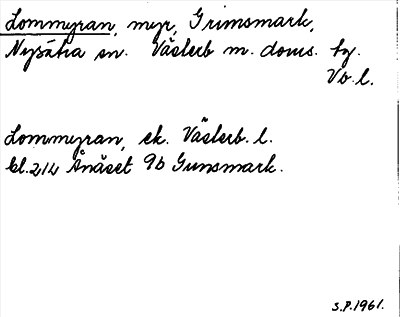 Lommyran, myr, Grimsmark,
Nysätra sn. Västerb m. doms. tg.
Vb. l.
Lommyran, ek. Västerb. l.
bl. 214 Ånäset 9b Gunsmark.
S.P. 1961.